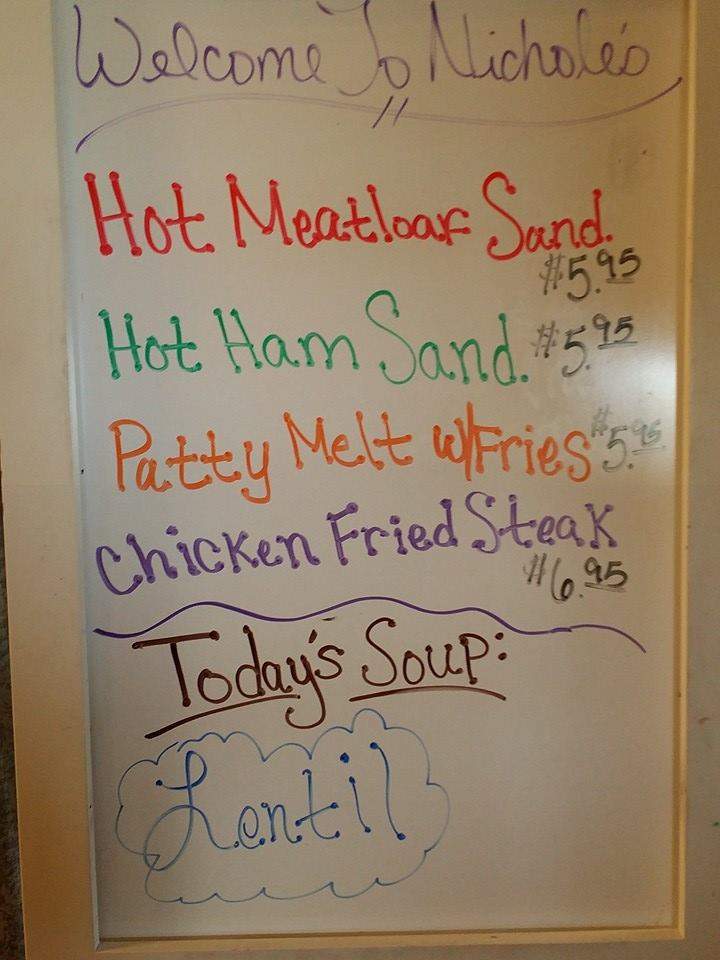 Welcome To Nichole's
Hot Meatloaf Sand.
$5.95
Hot Ham Sand. $5.95
Patty Melt w/Fries $5.95
Chicken Fried Steak
$6.95
Today's Soup:
Lentil